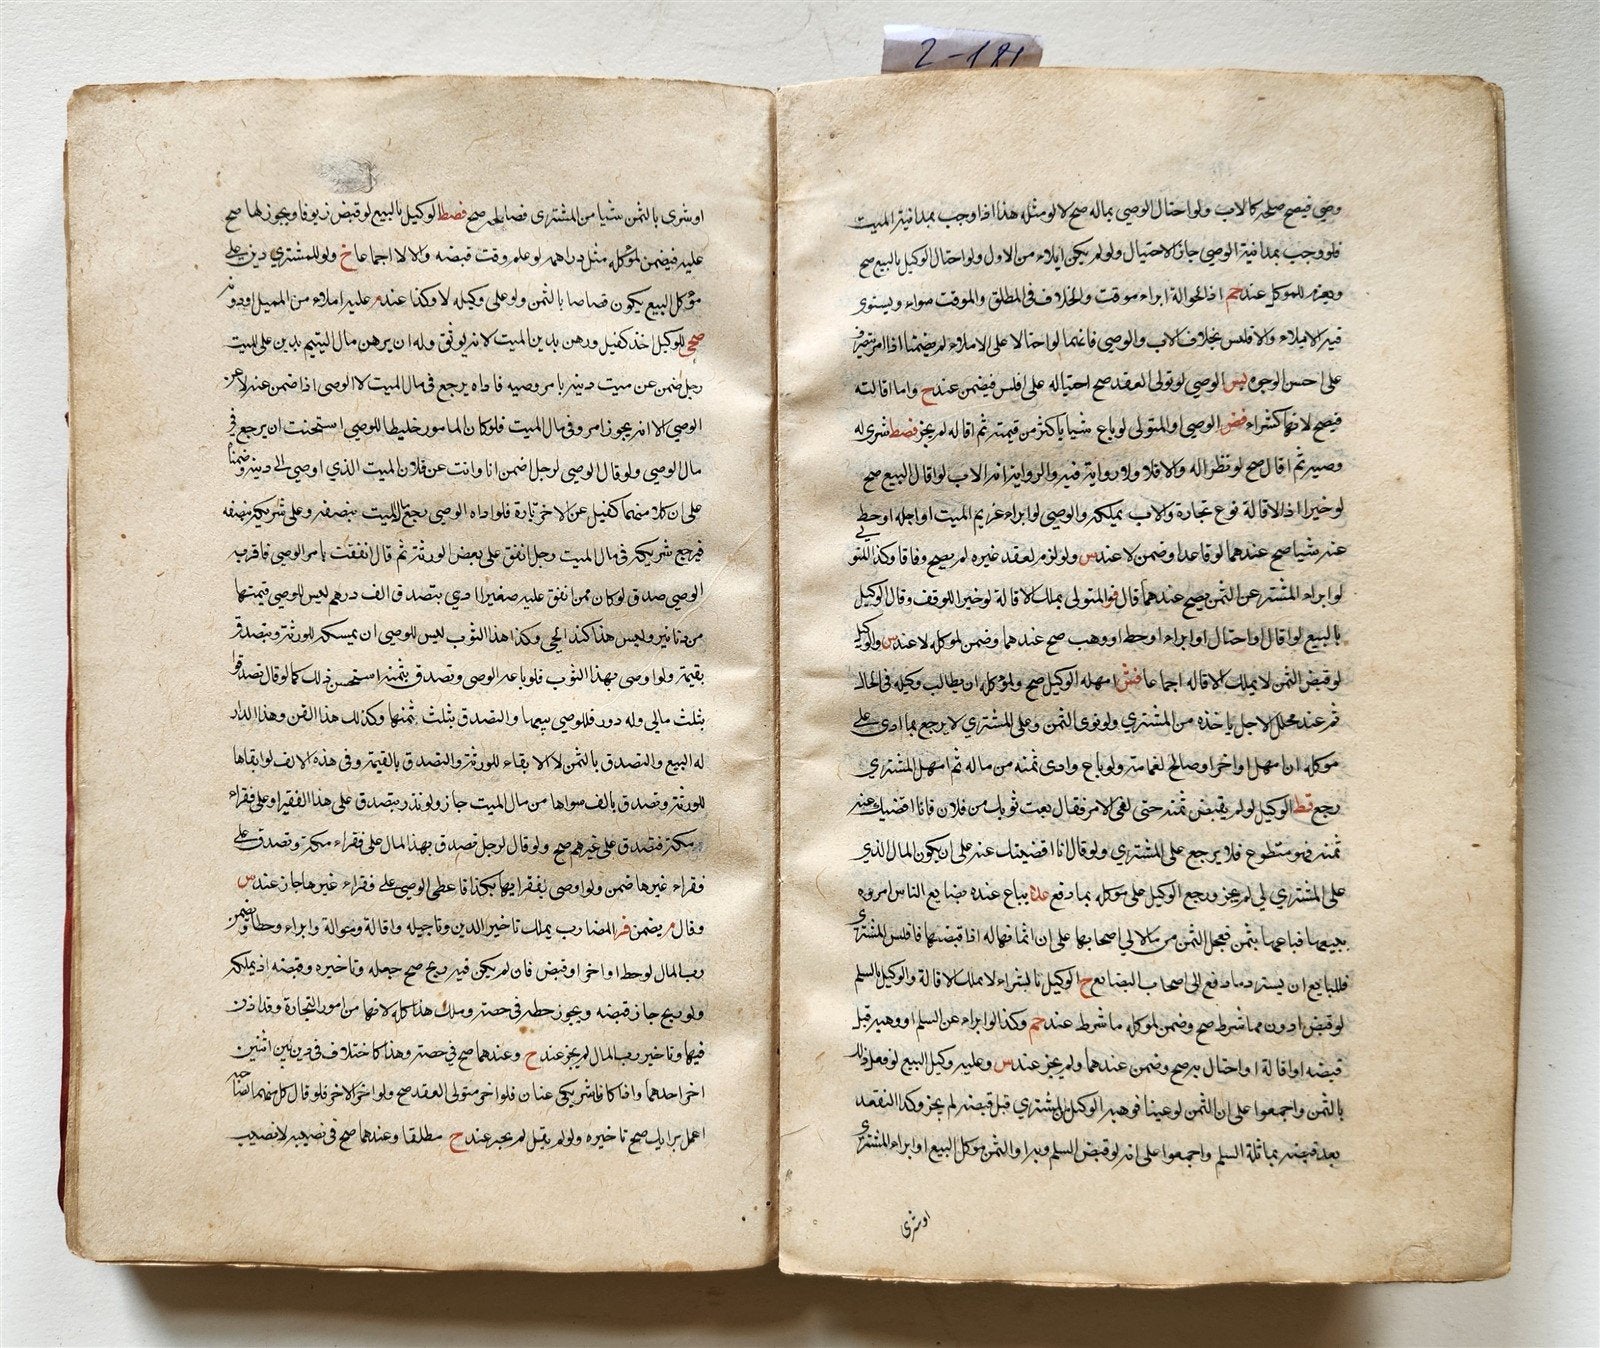 2-181
وصي فيصح صلحه كالاب ولو احتال الوصي بماله صح لا لو مثله هذا اذا وجب بمداينة الميت
فلو وجب بمداينة الوصي جاز الاحتيال ولو لم يكن املاء من الاول ولو احتال الوكيل بالبيع صح
للموكل عند حم اذ الحوالة ابراء موقت والخلاف في المطلق والموقت سواء ويستوي
فيه الاملاء والافلس بخلاف الاب والوصي فانهما لو احتالا على الاملاء لم يضمنا اذا امر
على احسن الوجوه يس الوصي لو تولى العقد صح احتياله على افلس فيضمن عند ح واما اقالته
فيصح لانها كشراء فض الوصي او المتولي لو باع شيا باكثر من قيمته ثم اقاله لم يجز فصط شرى له
وصيه ثم اقال صح لو نظرا له والا فلا ولا رواية فيه والرواية انه الاب لو اقال البيع صح
لو خيرا اذ الاقالة نوع تجارة والاب يملكه والوصي لو ابراء غريم الميت او اجله او حط
عنه شيا صح عندهما لو عاقدا وضمن لا عند س ولو لزم لعقد غيره لم يصح وفاقا وكذا المتولي
لو ابراء المشتري عن الثمن يصح عندهما قال فو المتولي يملك الاقالة لو خيرا للوقف وقال الوكيل
بالبيع لو اقال او احتال او ابراء او حط او وهب صح عندهما وضمن لموكله لا عند س والوكيل
لو قبض الثمن لا يملك الاقاله اجماعا فش امهله الوكيل صح ولموكله ان يطالب وكيله في الحال
ثم عند محل الاجل ياخذه من المشتري ولو نوى الثمن وعلى المشتري لا يرجع بما ادى على
موكله ان امهل او اخر او صالح لغمامته ولو باع وادى ثمنه من ماله ثم امهل المشتري
رجع قط الوكيل لو لم يقبض ثمنه حتى لقي الامر فقال بعت ثوبك من فلان فانا اقضيك عنه
ثمنه فهو متطوع فلا يرجع على المشتري ولو قال انا اقضيتك عنه على ان يكون المال الذي
على المشتري لي لم يجز ورجع الوكيل على موكله بما دفع عده يباع عنده بضايع الناس امروه
ببيعها فباعها بثمن فعجل الثمن من ماله الى اصحابها على ان اثمانها له اذا قبضها فافلس المشتري
فللبايع ان يسترد ما دفع الى اصحاب البضايع ح الوكيل بالشراء لا يملك الاقالة والوكيل بالسلم
لو قبض ادون مما شرط صح وضمن لموكله ما شرط عند حم وكذا لو ابراء عن السلم او وهبه قبل
قبضه او اقالة او احتال به صح وضمن عندهما ولم يجز عند س وعليه وكيل البيع لو فعل ذلك
بالثمن واجمعوا على ان الثمن لو عينا فوهبه الوكيل للمشتري قبل قبضه لم يجز وكذا النقد
بعد قبضه بماثلة السلم واجمعوا على انه لو قبض السلم وبرا والثمن موكل البيع او ابراء المشتري
او شرى
او شرى بالثمن شيا من المشتري فصالحه صح فصط الوكيل بالبيع لو قبض زيوفا وتجوز بها صح
عليه فيضمن لموكله مثل دراهمه لو علم وقت قبضه والا لا اجماعا خ ولو للمشتري دين على
موكل البيع يكون قصاصا بالثمن ولو على وكيله لا وكذا عند م عليه املاء من المميل او دونه
صح للوكيل اخذ كفيل ورهن بدين الميت لانه يوثق وله ان يرهن مال اليتيم بدين على الميت
رجل ضمن عن ميت دينه بامر وصيه فاداه يرجع في مال الميت لا الوصي اذا ضمن عنه لا عن
الوصي الا انه يجوز امره في مال الميت فلو كان المامور خليطا للوصي استحسنت ان يرجع في
مال الوصي ولو قال الوصي لرجل اضمن انا وانت عن فلان الميت الذي اوصى الى دينه وضمنا
على ان كلا منهما كفيل عن الاخر بامره فلو اداه الوصي رجع الميت بنصفه وعلى شريكه بنصفه
فيرجع شريكه في مال الميت رجل انفق على بعض الورثة ثم قال انفقت بامر الوصي فاقر به
الوصي صدق لو كان ممن انفق عليه صغيرا اوصي بتصدق الف درهم ليس للوصي قيمتها
من دنانير وليس هذا كنذر الحي وكذا هذا الثوب ليس للوصي ان يمسكه للورثة ويتصدق
بقيمته ولو اوصى بهذا الثوب فلو باعه الوصي وتصدق بثمنه استحسن ذلك كما لو قال تصدقوا
بثلث مالي وله دور فللوصي بيعها والتصدق بثلث ثمنها وكذلك هذا القن وهذا الدار
له البيع والتصدق بالثمن لا الابقاء للورثة والتصدق بالقيمة وفي هذه الالف لو ابقاها
للورثة وتصدق بالف سواها من مال الميت جاز ولو نذر بتصدق على هذا الفقير او على فقراء
مكة فتصدق على غيرهم صح ولو قال لرجل تصدق بهذا المال على فقراء مكة وتصدق على
فقراء غيرها ضمن ولو اوصى لفقرائها بكذا فاعطى الوصي على فقراء غيرها جاز عند س
وقال م يضمن فر المضارب يملك تاخير الدين وتاجيله واقالة وحوالة وابراء وحطا وضمن
رب المال لو حط او اخر او قبض فان لم يكن فيه ربح صح جعله وتاخيره وقبضه اذ يملكه
ولو ربح جاز قبضه ويجوز حطه في حصته وملك هذا كله لانها من امور التجارة وقد اذن
فيها وتاخير رب المال لم يجز عند ح وعندهما صح في حصته وهذا كاختلاف في دين بين اثنين
اخر احدهما وافا كانا شريكي عنان فلو اخر متولي العقد صح ولو اخر الاخر فلو قال كل منهما لصاحبه
اعمل برايك صح تاخيره ولو لم يقبل لم يجز عند ح مطلقا وعندهما صح في نصيبه لا نصيب